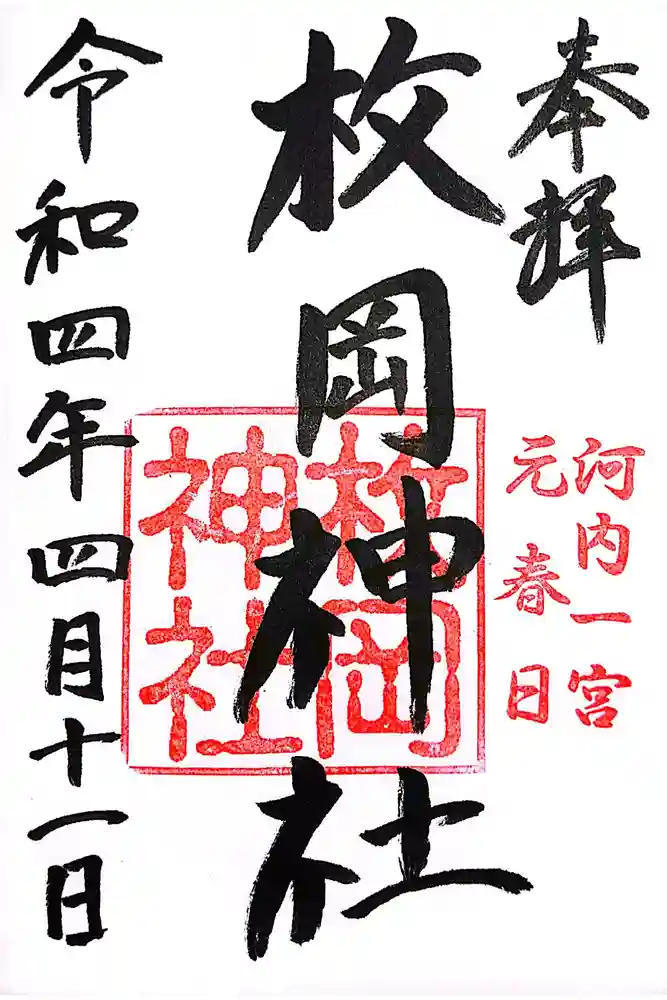 奉拝
河内一宮
元春日
枚岡神社
枚岡神社
令和四年四月十一日